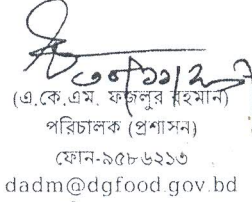 ৩০/১১/২০
(এ.কে.এম. ফজলুর রহমান)
পরিচালক (প্রশাসন)
ফোন-৯৫৮৬২১৩
dadm@dgfood.gov.bd